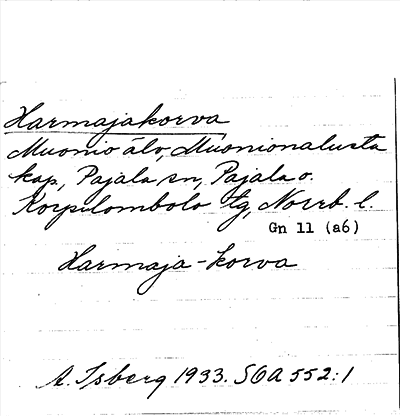 Harmajakorva
Muonio älv, Muonionalusta
kap, Pajala sn, Pajala o.
Korpilombolo tg, Norrb. l.
Gn 11 (a6)
Harmaja-korva
A. Isberg 1933. SOA 552:1